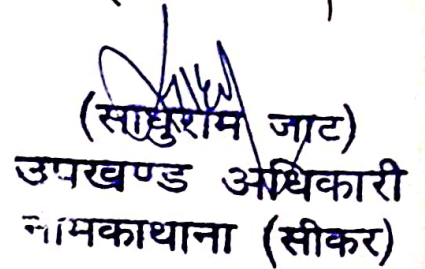 (साधुराम जाट)
उपखण्ड अधिकारी
नीमकाथाना (सीकर)